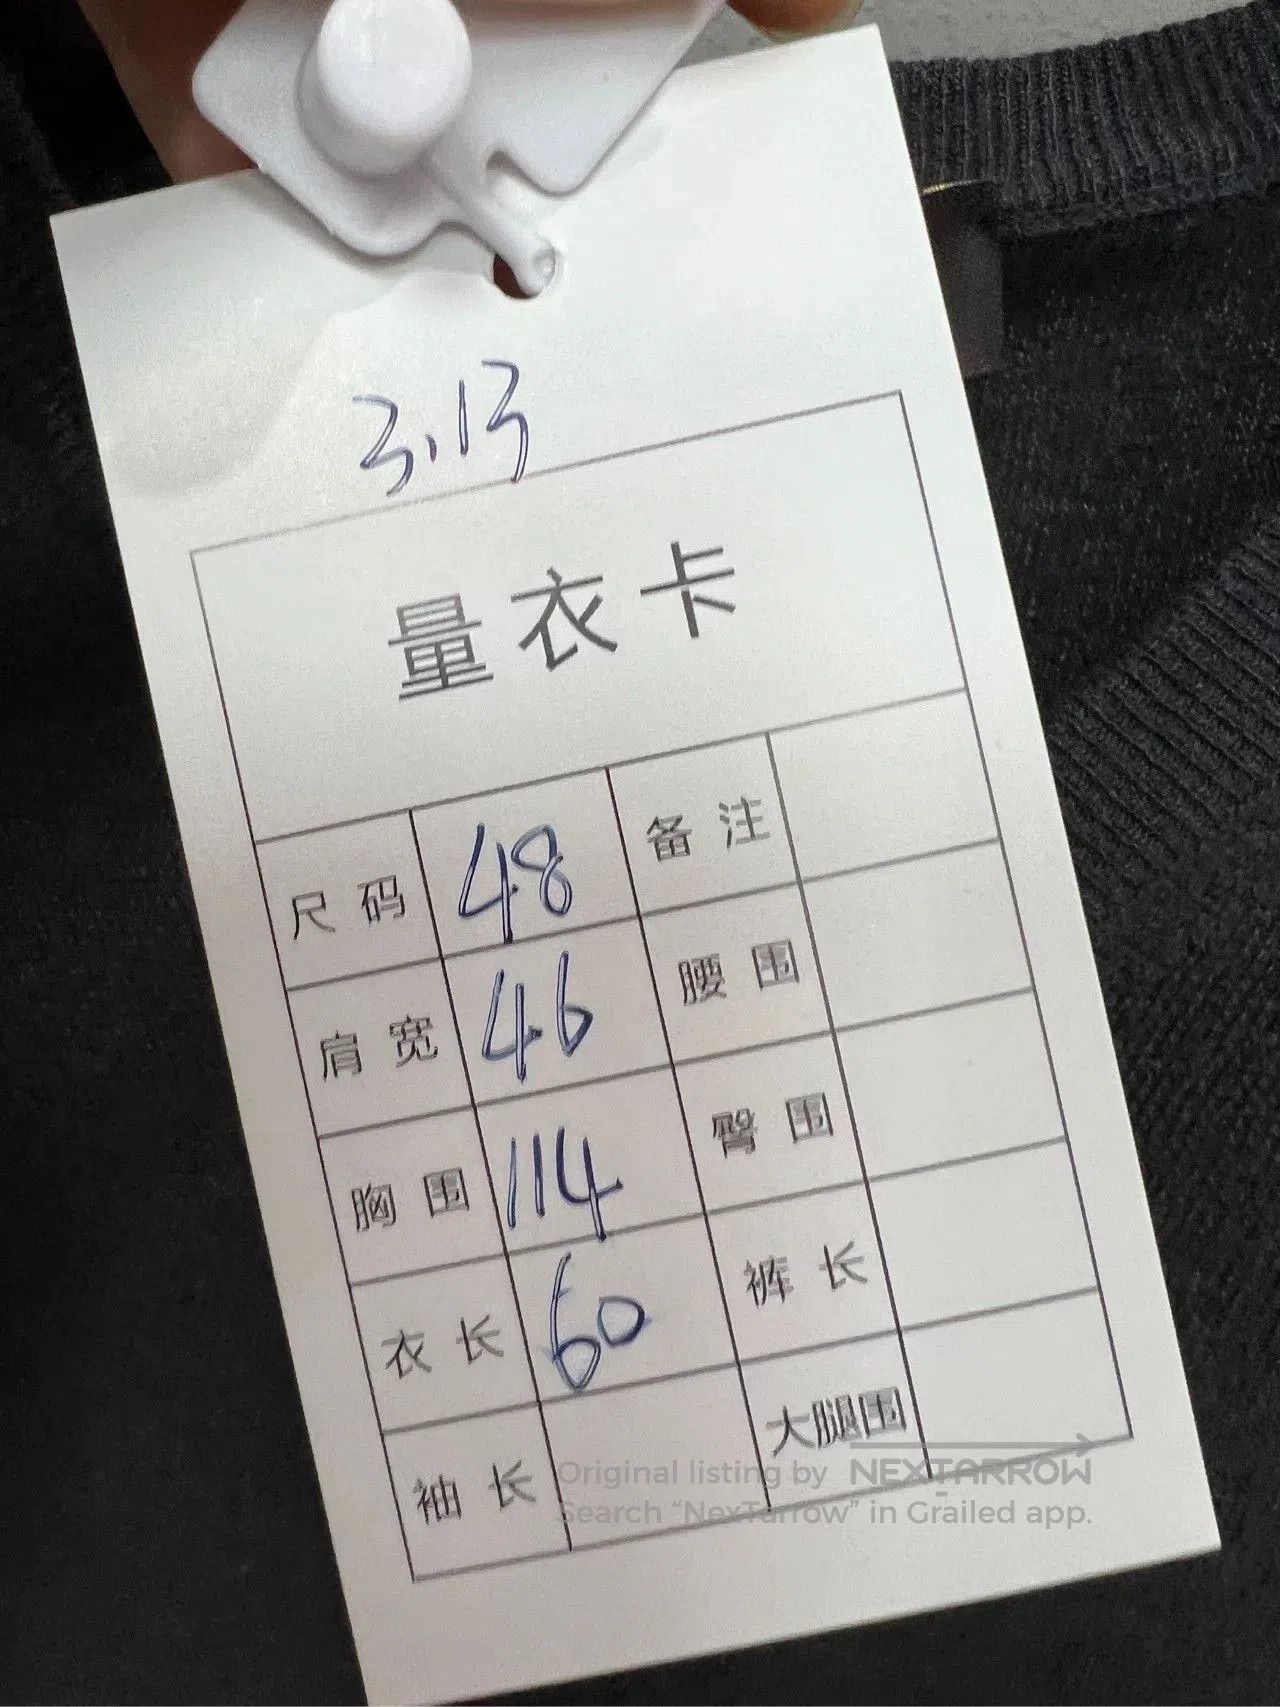 3.13
量衣卡
尺码 48 备注
肩宽 46 腰围
胸围 114 臀围
衣长 60 裤长
袖长 大腿围
Original listing by NEXTARROW
Search “NexTarrow” in Grailed app.